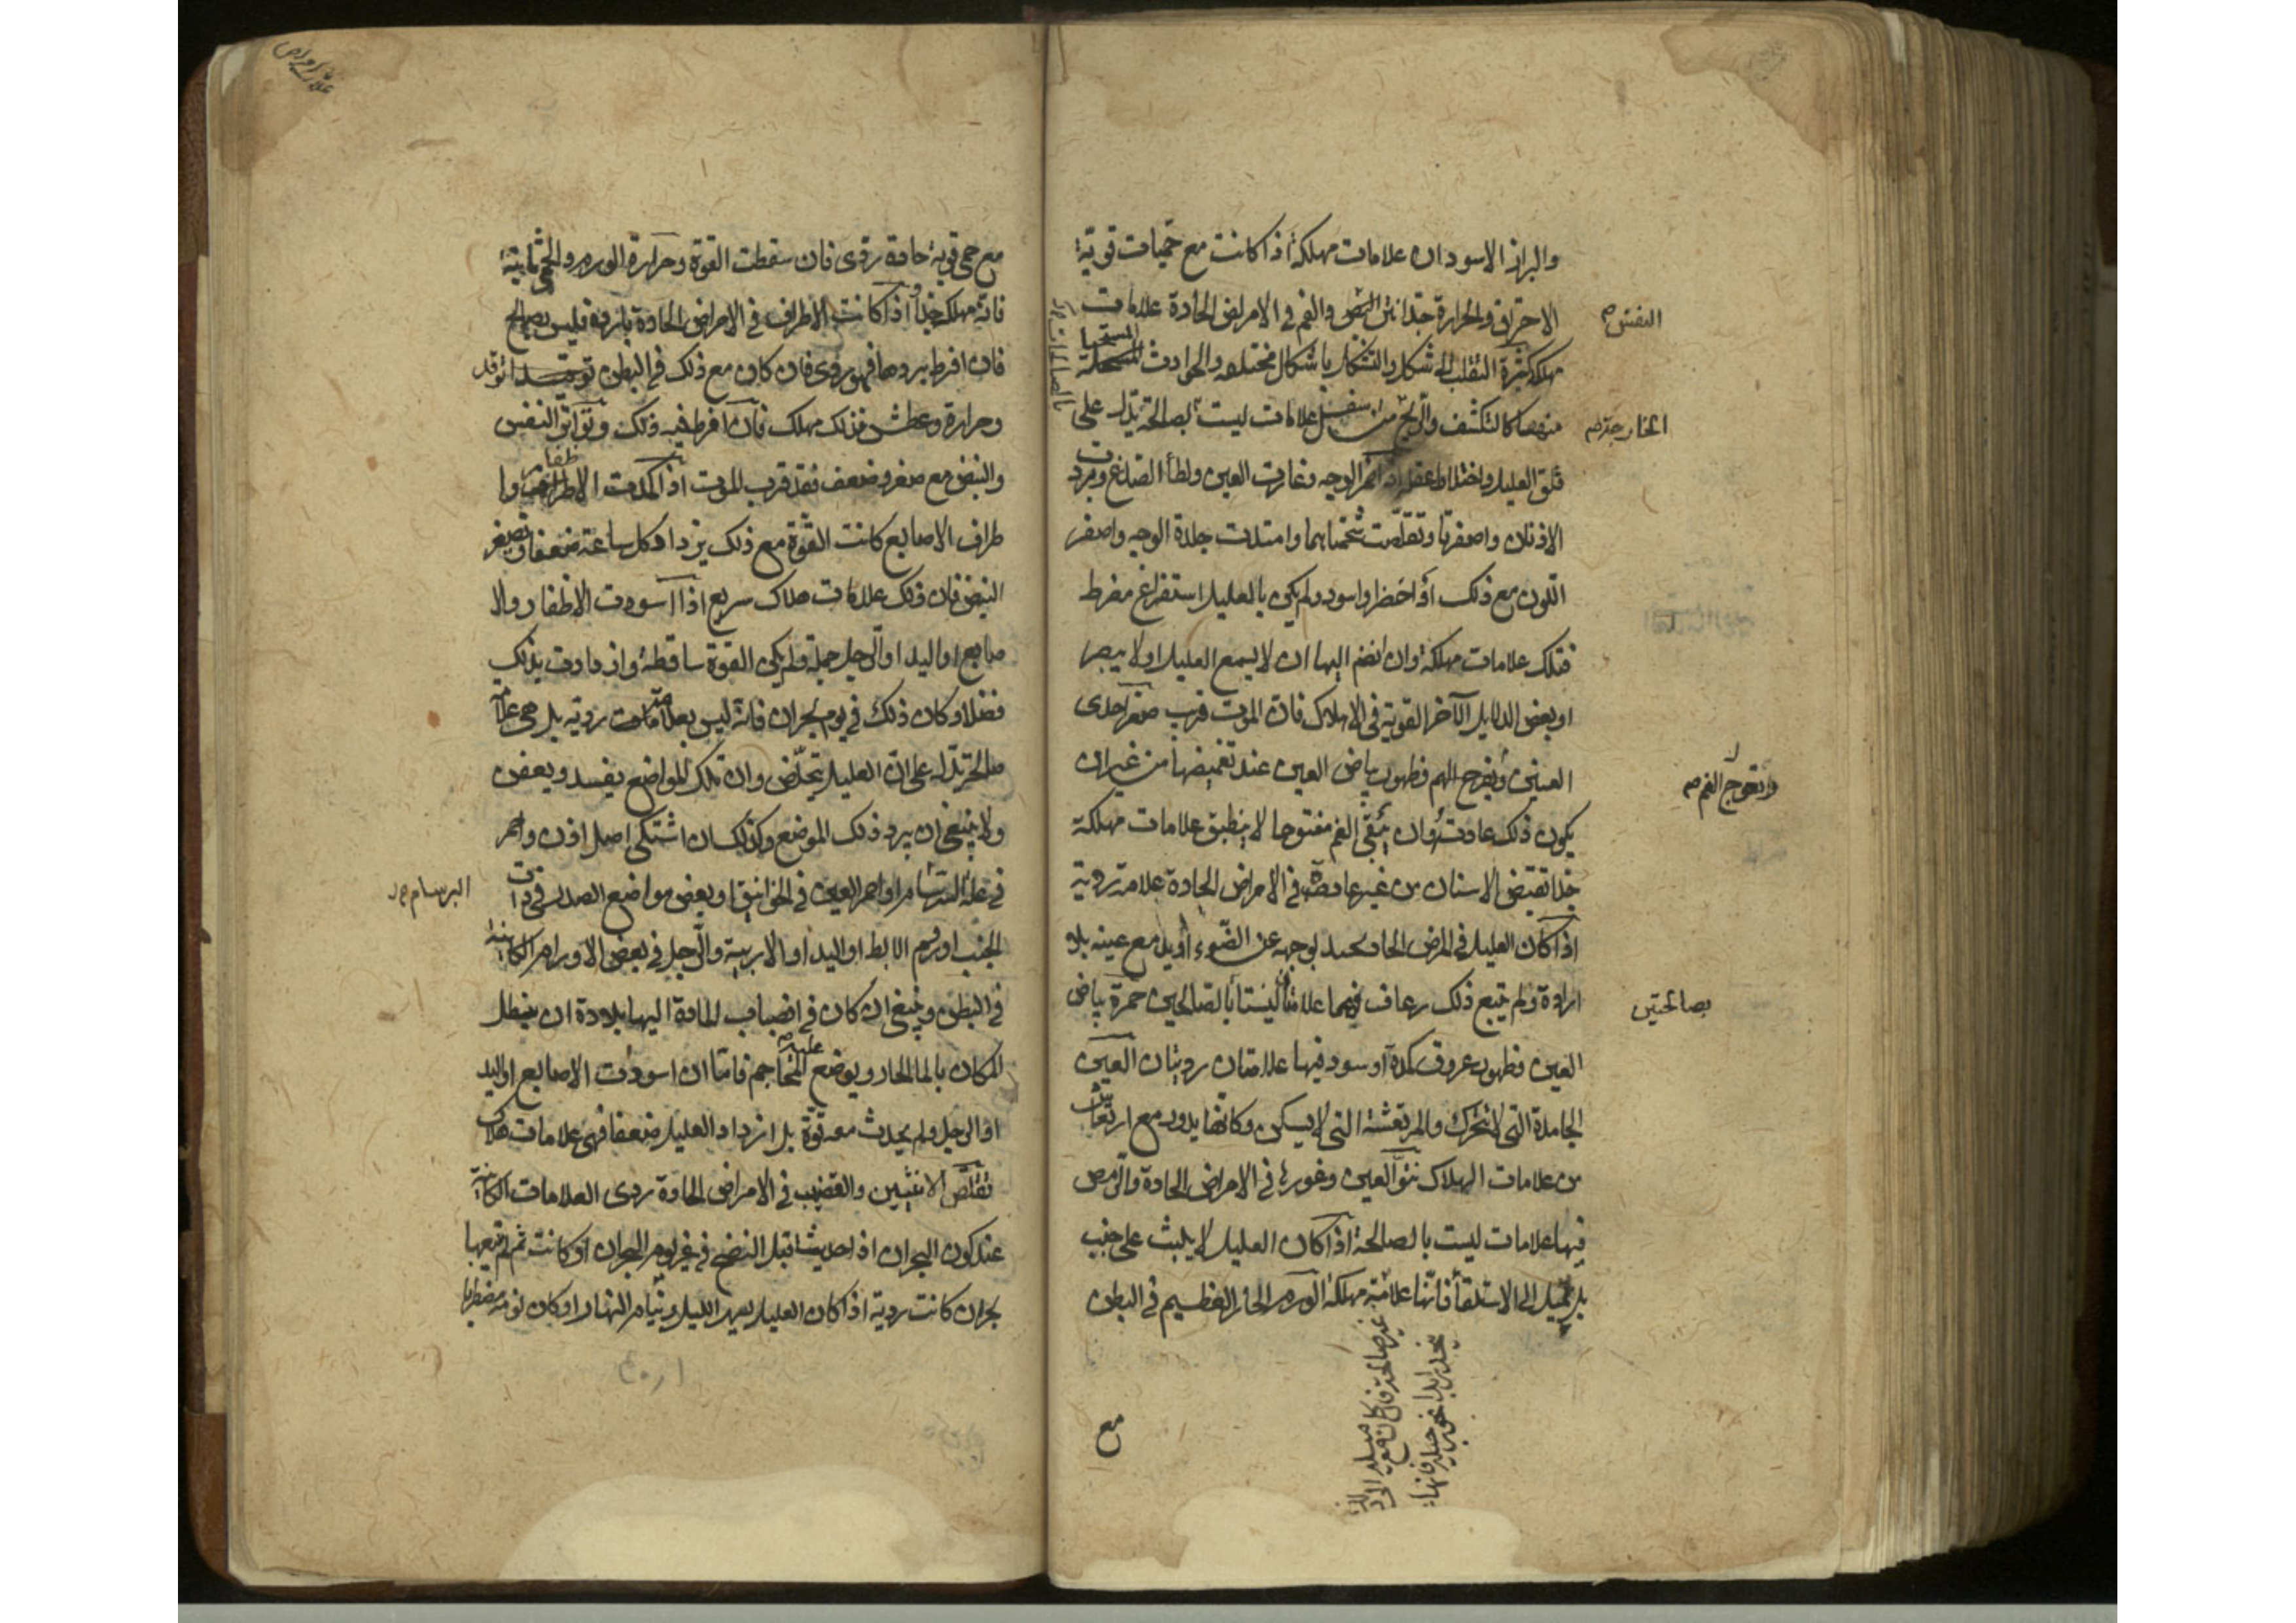 والبراز الاسودان علامات مهلكة اذا كانت مع حميات قوية
الاحتراق والحرارة جدا نتن النفس والفم فى الامراض الحادة علامات
النفس
مهلكة كثرة التقلب الى شكل والتشكل باشكال مختلفة والحوادث
منها كالتكشف والريح من اسفل علامات ليست بصالحة تدل على
الخارجة
قلق العليل واختلاط عقله اذا الوجه وغارت العين ولطأ الصدغ وبردت
الاذنان واصفرتا وتقلصت شحمتاهما وامتدت جلدة الوجه واصفر
اللون مع ذلك او اخضر او اسود ولم يكن بالعليل استفراغ مفرط
فتلك علامات مهلكة وان انضم اليها ان لا يسمع العليل او لا يبصر
او بعض الدلايل الآخر القوية فى الاهلاك فان الموت قرب صغر احدى
العينين وظهور بياض العين عند تغميضها من غير ان
وتعوج الفم
يكون ذلك عادت وان يبقى الفم مفتوحا لا ينطبق علامات مهلكة
جدا الاسنان من غير عادة فى الامراض الحادة علامة ردية
اذا كان العليل فى المرض الحاد يحيد بوجهه عن الضوء او يدمع عينه بلا
ارادة ولم يتبع ذلك رعاف فهما علامتان ليستا بالصالحين حمرة بياض
بصالحتين
العين وظهور عروق كمدة او سود فيها علامتان رديتان العين
الجامدة التى لا تتحرك والمرتعشة التى لا يسكن وكانها يدور مع ارتعاش
من علامات الهلاك نتو العين وغورها فى الامراض الحادة والرمص
فيها علامات ليست بالصالحة اذا كان العليل لا يلبث على جنب
بل يميل الى الاستلقاء فانها علامة مهلكة الورم الحار العظيم فى البطن
مع
مع حمى قوية حادة ردى فان سقطت القوة وحرارة الورم والحمى ثابتة
فانه مهلك جدا اذا كانت الاطراف فى الامراض الحادة باردة فليس بصالح
فان افرط بردها فهو ردى فان كان مع ذلك فى البطن توقد
وحرارة وعطش فذلك مهلك فان افرط فيه ذلك وتواتر النفس
والنبض مع صغر وضعف فقد قرب الموت اذا كمدت الاظفار وا
طراف الاصابع كانت القوة مع ذلك يزداد كل ساعة ضعفا وتصغر
النبض فان ذلك علامات هلاك سريع اذا اسودت الاظفار والا
صابع او اليد او الرجل جملة ولم يكن القوة ساقطة وازدادت بذلك
فضلا وكان ذلك فى يوم بحران فانه ليس بعلامات ردية بل هى علامة
صالحة تدل على ان العليل يتخلص وان تلك المواضع يفسد ويعفن
ولا ينبغى ان يبرد ذلك الموضع وكذلك ان اشتكى اصل اذن واحمر
فى علة او احمر العين فى الخوانيق او بعض مواضع الصدر فى ذات
البرسام
الجنب او ورم الابط او اليد او الاربية والرجل فى بعض الاورام الكاينة
فى البطن وينبغى ان كان فى انصباب المادة اليها بلادة ان ينطل
المكان بالماء الحار ويوضع عليه المحاجم فاما ان اسودت الاصابع او اليد
او الرجل ولم يحدث معه قوة بل ازداد العليل ضعفا فهى علامات هلاك
تقلص الانثيين والقضيب فى الامراض الحادة ردى العلامات الكاينة
عند كون البحران اذا حدثت قبل النضج فى غير يوم البحران او كانت ثم لم يتبعها
بحران كانت ردية اذا كان العليل يسهر الليل وينام النهار او كان نومه مضطربا